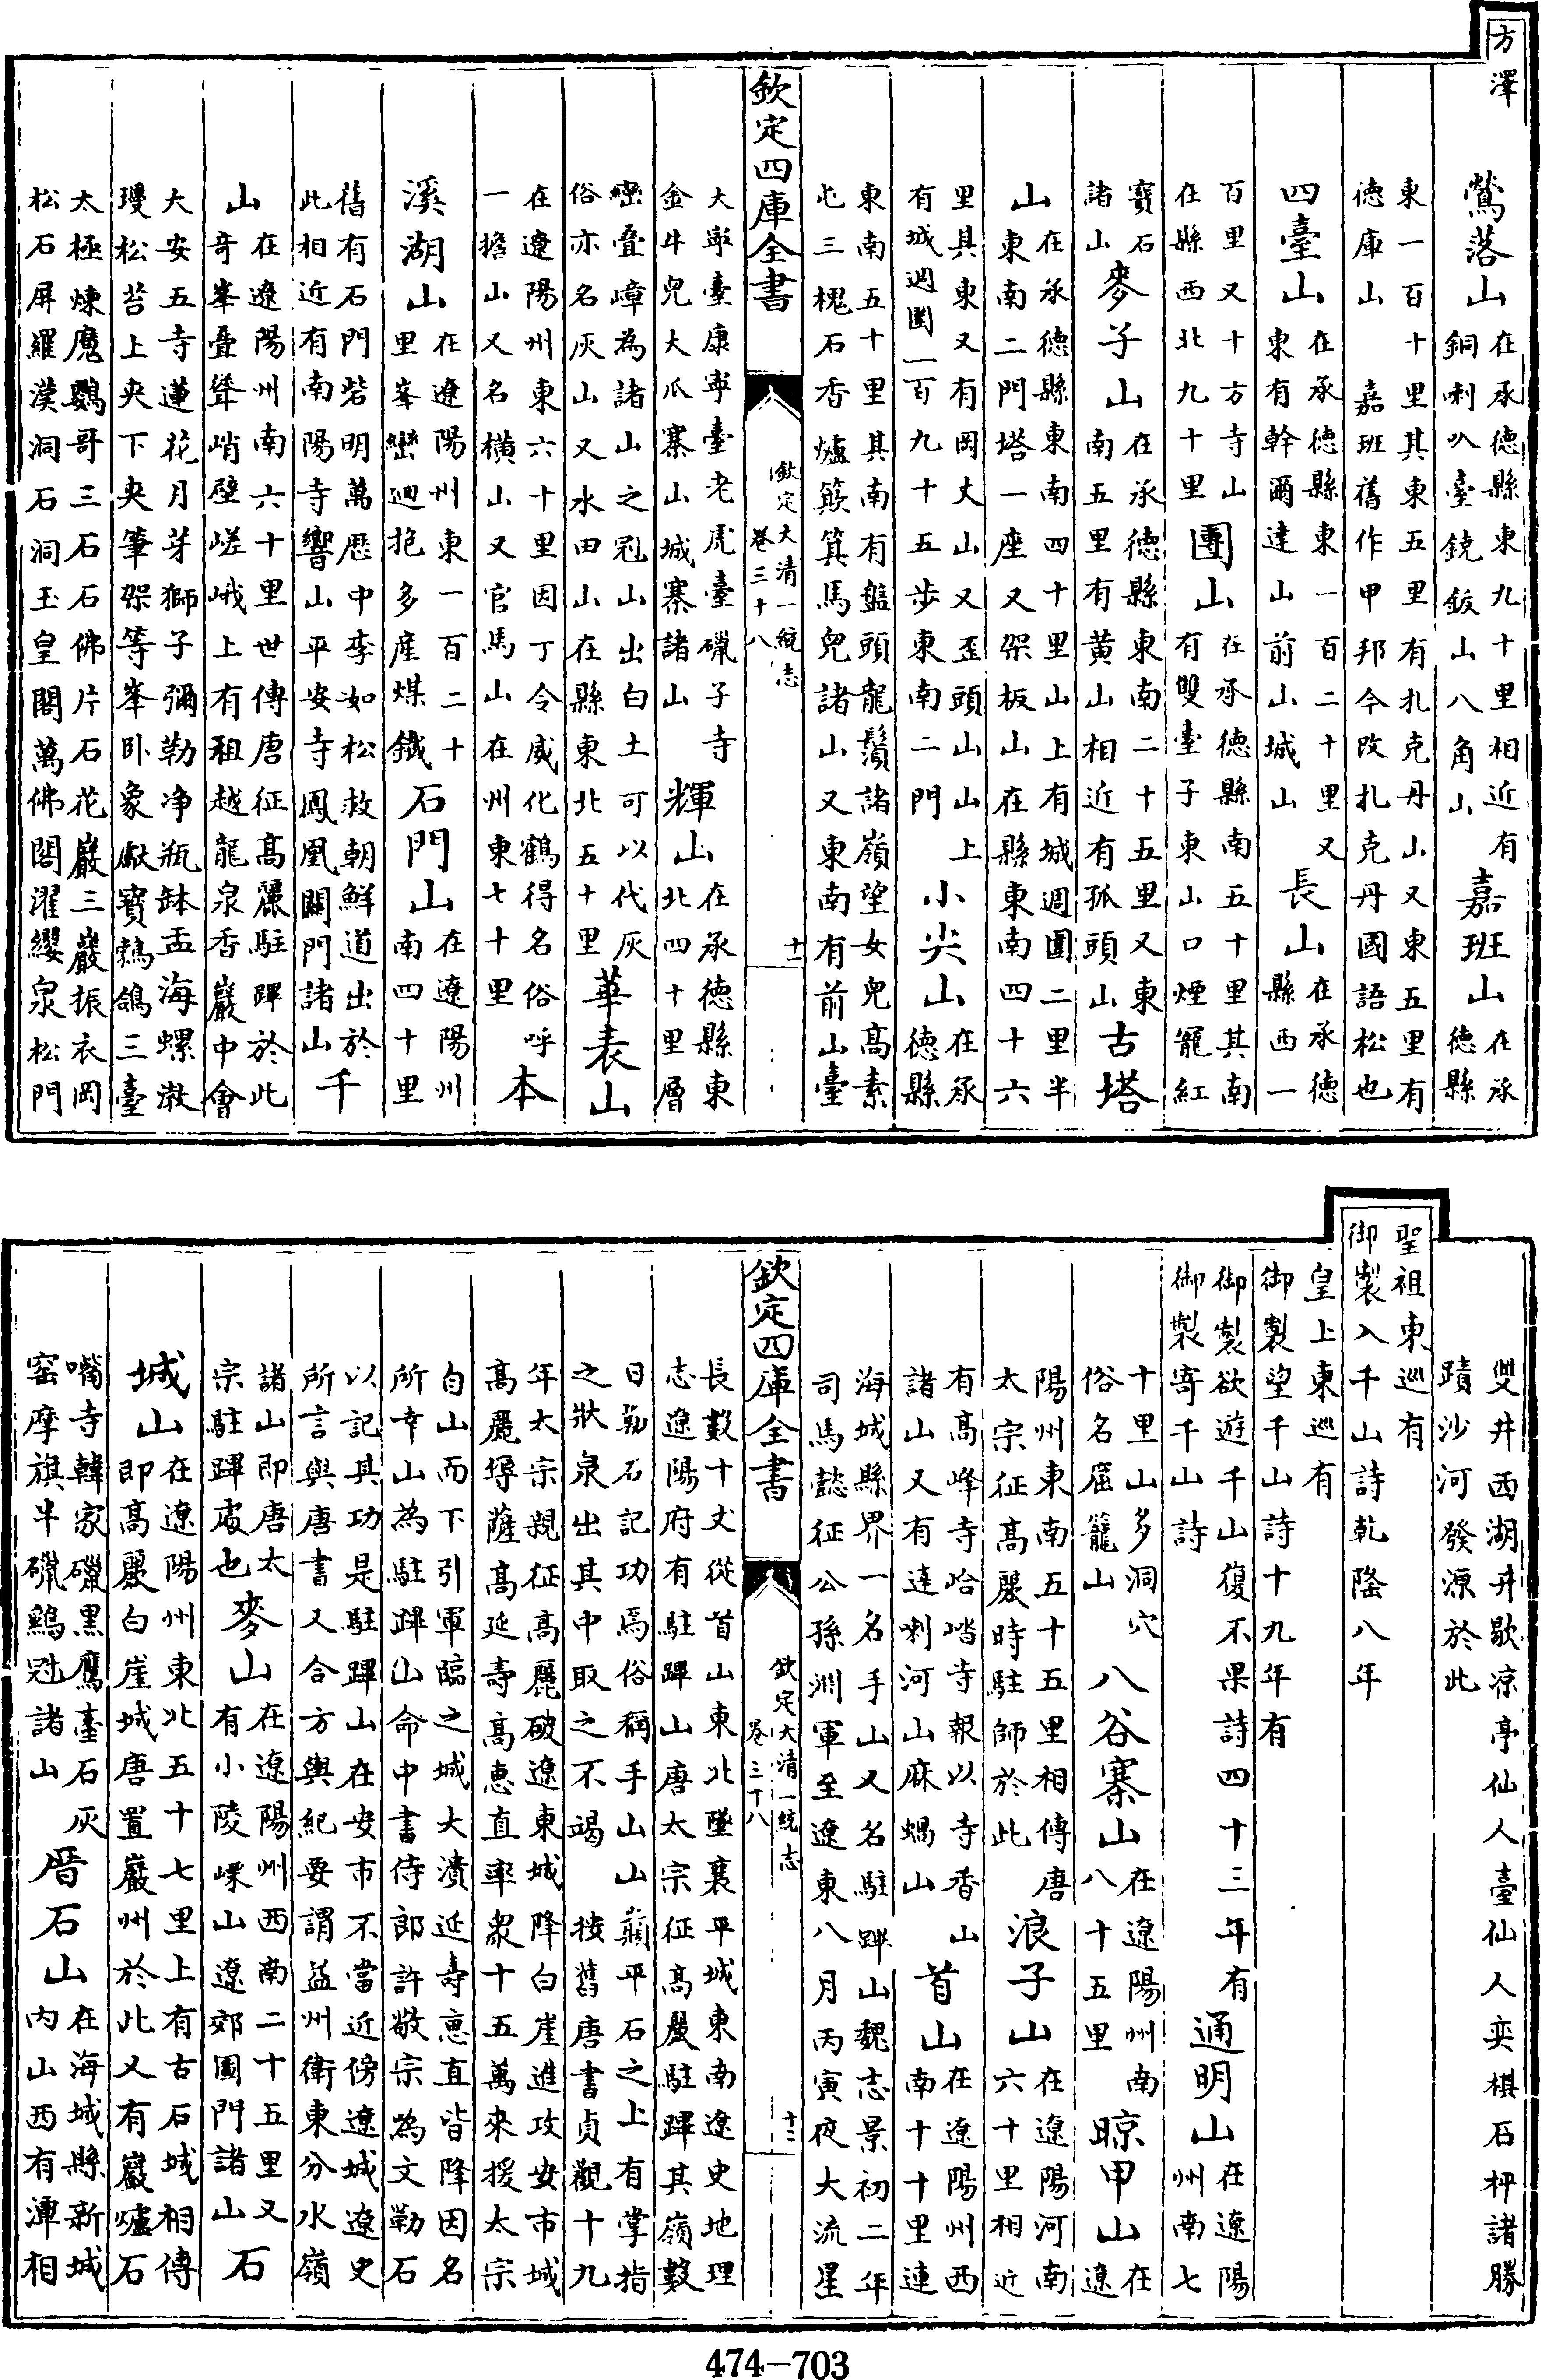 方澤
鶯落山 在承德縣東九十里相近有 銅喇叭臺鐃鈸山八角山 嘉班山 在承 德縣
東一百十里其東五里有扎克丹山又東五里有 德庫山 嘉班舊作甲邦今改扎克丹國語松也
四臺山 在承德縣東一百二十里又 東有幹爾達山前山城山 長山 在承德 縣西一
百里又十方寺山 在縣西北九十里 團山 在承德縣南五十里其南 有雙臺子東山口煙籠紅
寶石 諸山 麥子山 在承德縣東南二十五里又東 南五里有黃山相近有孤頭山 古塔
山 在承德縣東南四十里山上有城週圍二里半 東南二門塔一座又架板山在縣東南四十六
里其東又有岡丈山又歪頭山山上 有城週圍一百九十五步東南二門 小尖山 在承 德縣
東南五十里其南有盤頭龍鬚諸嶺望女兒高素 屯三槐石香爐簸箕馬兒諸山又東南有前山臺
欽定四庫全書 欽定大清一統志 卷三十八 十一
大寧臺康寧臺老虎臺磖子寺 金牛兒大瓜寨山城寨諸山 輝山 在承德縣東 北四十里層
巒疊嶂為諸山之冠山出白土可以代灰 俗亦名灰山又水田山在縣東北五十里 華表山
在遼陽州東六十里因丁令威化鶴得名俗呼 一擔山又名橫山又官馬山在州東七十里 本
溪湖山 在遼陽州東一百二十 里峯巒迴抱多產煤鐵 石門山 在遼陽州 南四十里
舊有石門砦明萬厯中李如松救朝鮮道出於 此相近有南陽寺響山平安寺鳳凰關門諸山 千
山 在遼陽州南六十里世傳唐征高麗駐蹕於此 奇峯疊聳峭壁嵯峨上有祖越龍泉香巖中會
大安五寺蓮花月芽獅子彌勒净瓶缽盂海螺漱 瓊松苔上夾下夾筆架等峯卧象獻寶鵓鴿三臺
太極煉魔鸚哥三石石佛片石花巖三巖振衣岡 松石屏羅漢洞石洞玉皇閣萬佛閣濯纓泉松門
雙井西湖井歇凉亭仙人臺仙人奕棋石枰諸勝 蹟沙河發源於此
聖祖東巡有 御製入千山詩乾隆八年
皇上東巡有 御製望千山詩十九年有
御製欲遊千山復不果詩四十三年有 御製寄千山詩 通明山 在遼陽 州南七
十里山多洞穴 俗名窟籠山 八谷寨山 在遼陽州南 八十五里 晾甲山 在 遼
陽州東南五十五里相傳唐 太宗征高麗時駐師於此 浪子山 在遼陽河南 六十里相近
有高峰寺哈寺報以寺香山 諸山又有達喇河山麻蝎山 首山 在遼陽州西 南十十里連
海城縣界一名手山又名駐蹕山魏志景初二年 司馬懿征公孫淵軍至遼東八月丙寅夜大流星
欽定四庫全書 欽定大清一統志 卷三十八 十二
長數十丈從首山東北墜襄平城東南遼史地理 志遼陽府有駐蹕山唐太宗征高麗駐蹕其嶺數
日勒石記功焉俗稱手山山巔平石之上有掌指 之狀泉出其中取之不竭 按舊唐書貞觀十九
年太宗親征高麗破遼東城降白崖進攻安市城 高麗傉薩高延壽高惠直率衆十五萬來援太宗
自山而下引軍臨之城大潰延壽惠直皆降因名 所幸山為駐蹕山命中書侍郎許敬宗為文勒石
以記其功是駐蹕山在安市不當近傍遼城遼史 所言與唐書又合方輿紀要謂益州衛東分水嶺
諸山即唐太 宗駐蹕處也 麥山 在遼陽州西南二十五里又 有小陵㟵山遼郊圖門諸山 石
城山 在遼陽州東北五十七里上有古石城相傳 即高麗白崖城唐置巖州於此又有巖爐石
嘴寺韓家磖黑鷹臺石灰 窑摩旗牛磖鷄冠諸山 厝石山 在海城縣新城 內山西有潭相
474-703